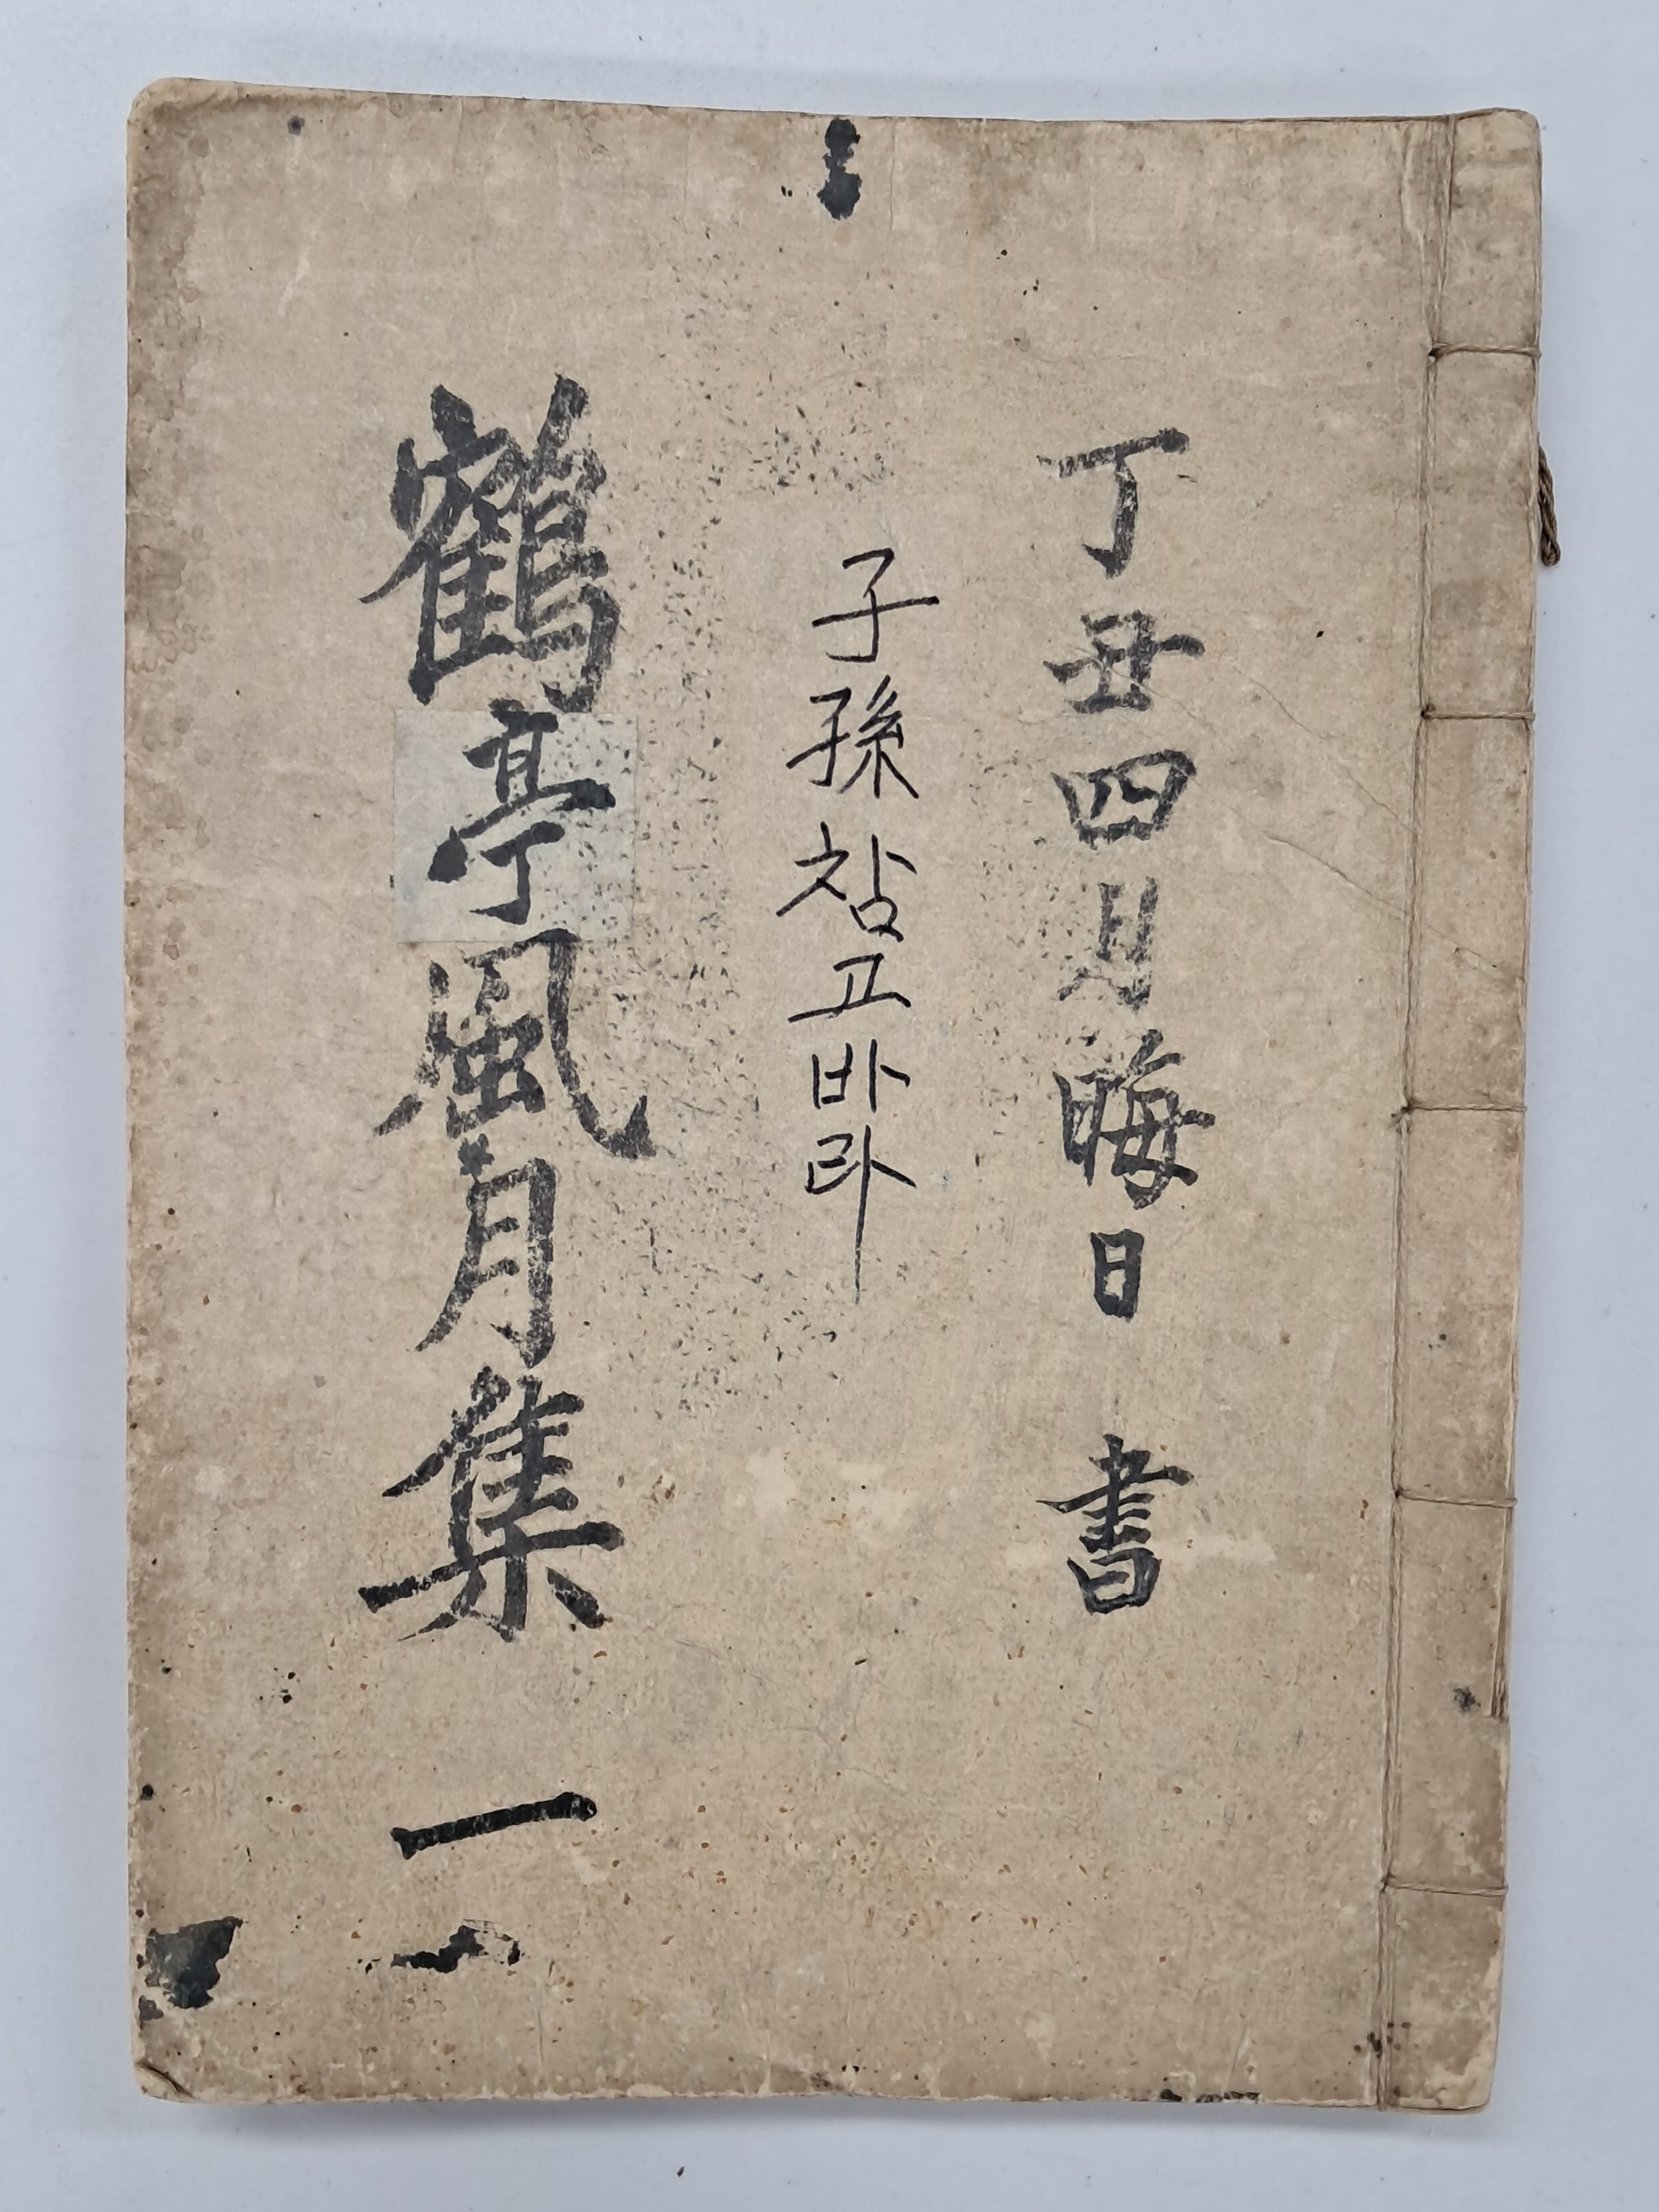 丁丑四月晦日 書
子孫참고바라
鶴亭風月集 一